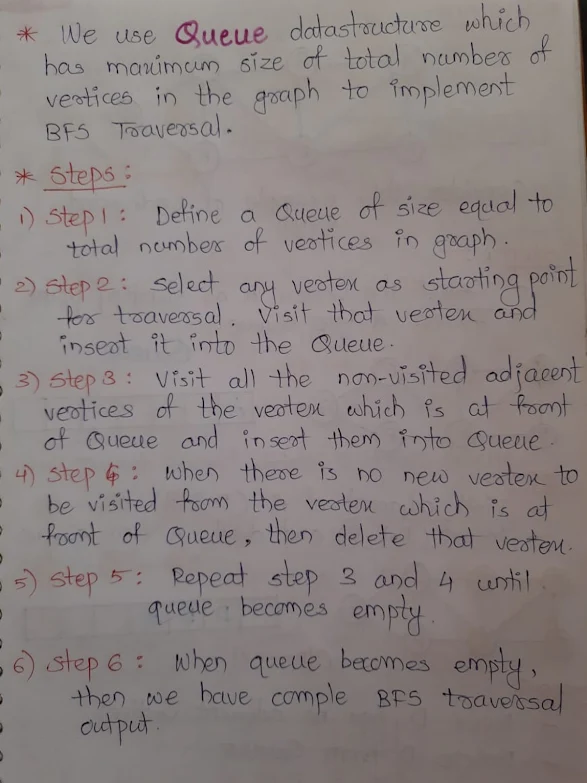 * We use Queue datastructure which
has maximum size of total number of
vertices in the graph to implement
BFS Traversal.
* Steps :
1) Step 1 : Define a Queue of size equal to
total number of vertices in graph.
2) Step 2 : Select any vertex as starting point
for traversal. Visit that vertex and
insert it into the Queue.
3) Step 3 : Visit all the non-visited adjacent
vertices of the vertex which is at front
of Queue and insert them into Queue.
4) Step 4 : When there is no new vertex to
be visited from the vertex which is at
front of Queue, then delete that vertex.
5) Step 5 : Repeat step 3 and 4 until
queue becomes empty.
6) Step 6 : When queue becomes empty,
then we have comple BFS traversal
output.